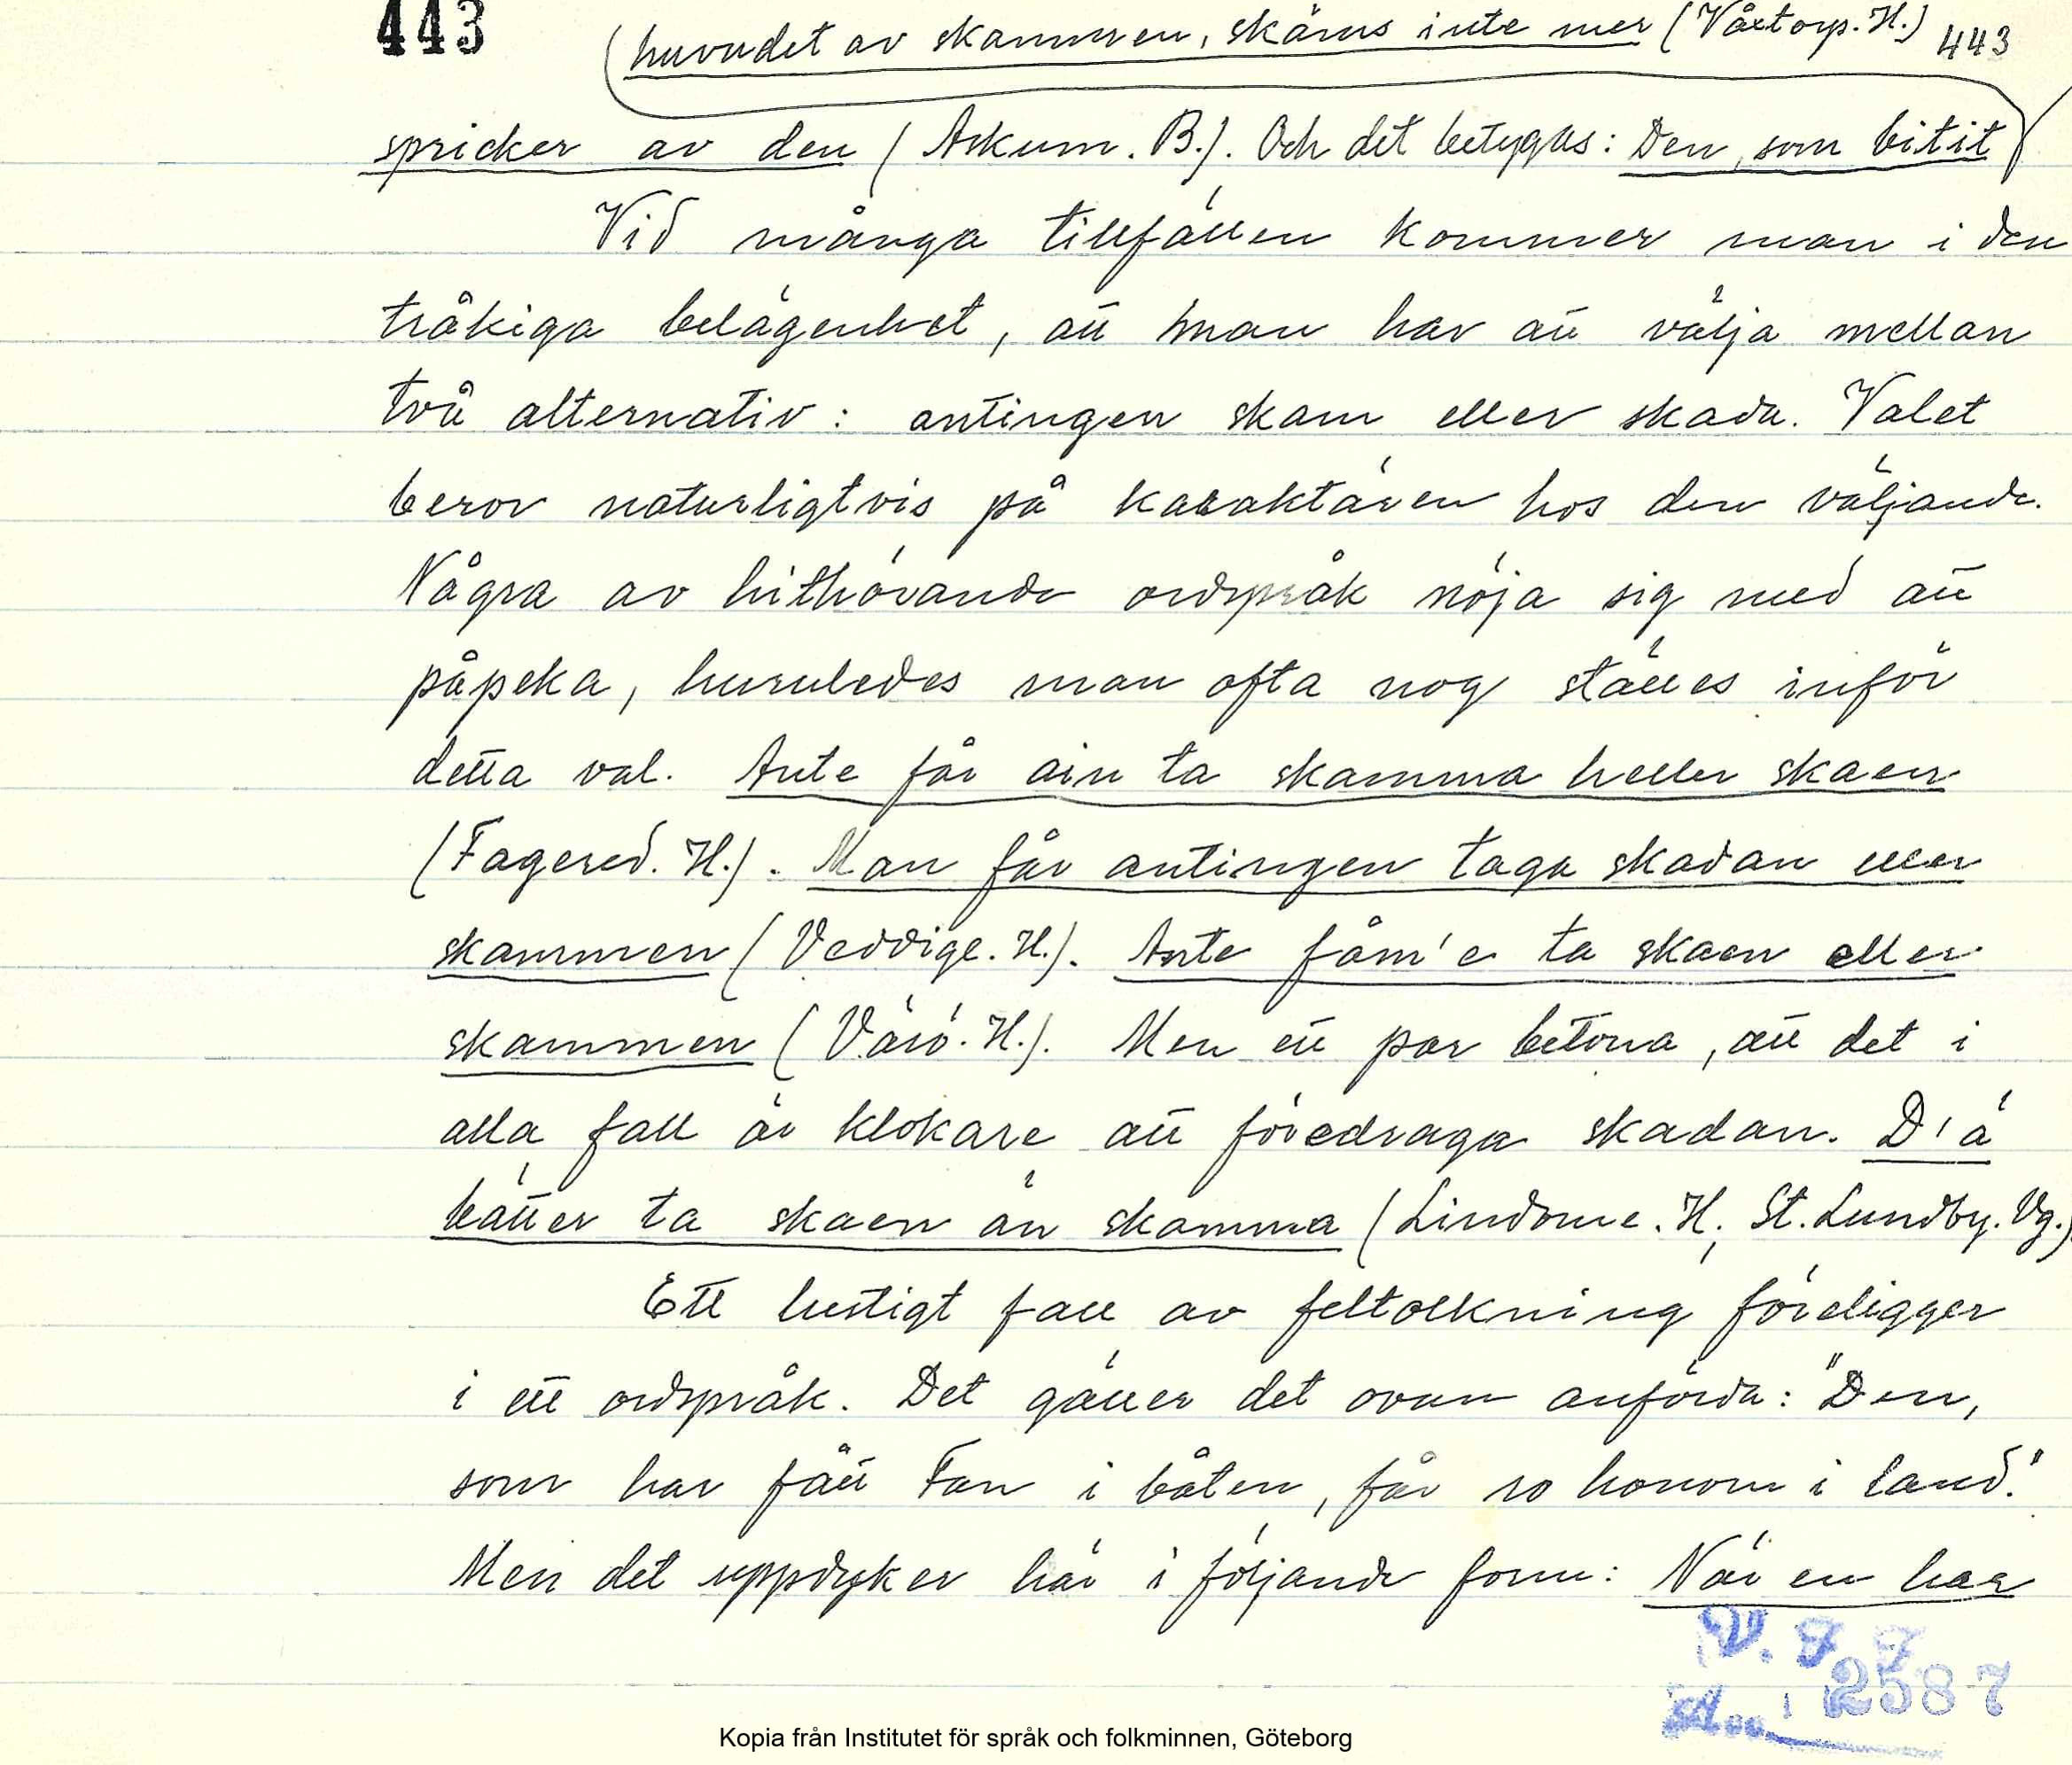 443
(huvudet av skammen, skäms inte mer (Våxtorp. H.) 443
spricker av den (Askum. B.). Och det betygas: Den, som bitit
Vid många tillfällen kommer man i den
tråkiga belägenhet, att man har att välja mellan
två alternativ: antingen skam eller skada. Valet
beror naturligtvis på karaktären hos den väljande.
Några av hithörande ordspråk nöja sig med att
påpeka, huruledes man ofta nog ställes inför
detta val. Ante får äin ta skamma heller skaen
(Fagered. H.). Man får antingen taga skadan eller
skammen (Veddige. H.). Ante fåm'e ta skaen eller
skammen (Värö. H.). Men ett par betona, att det i
alla fall är klokare att föredraga skadan. D'ä
bätter ta skaen än skamma (Lindome. H; St. Lundby. Vg.)
Ett lustigt fall av feltolkning föreligger
i ett ordspråk. Det gäller det ovan anförda: "Den,
som har fått Fan i båten, får ro honom i land."
Men det uppdyker här i följande form: När en har
2587
Kopia från Institutet för språk och folkminnen, Göteborg